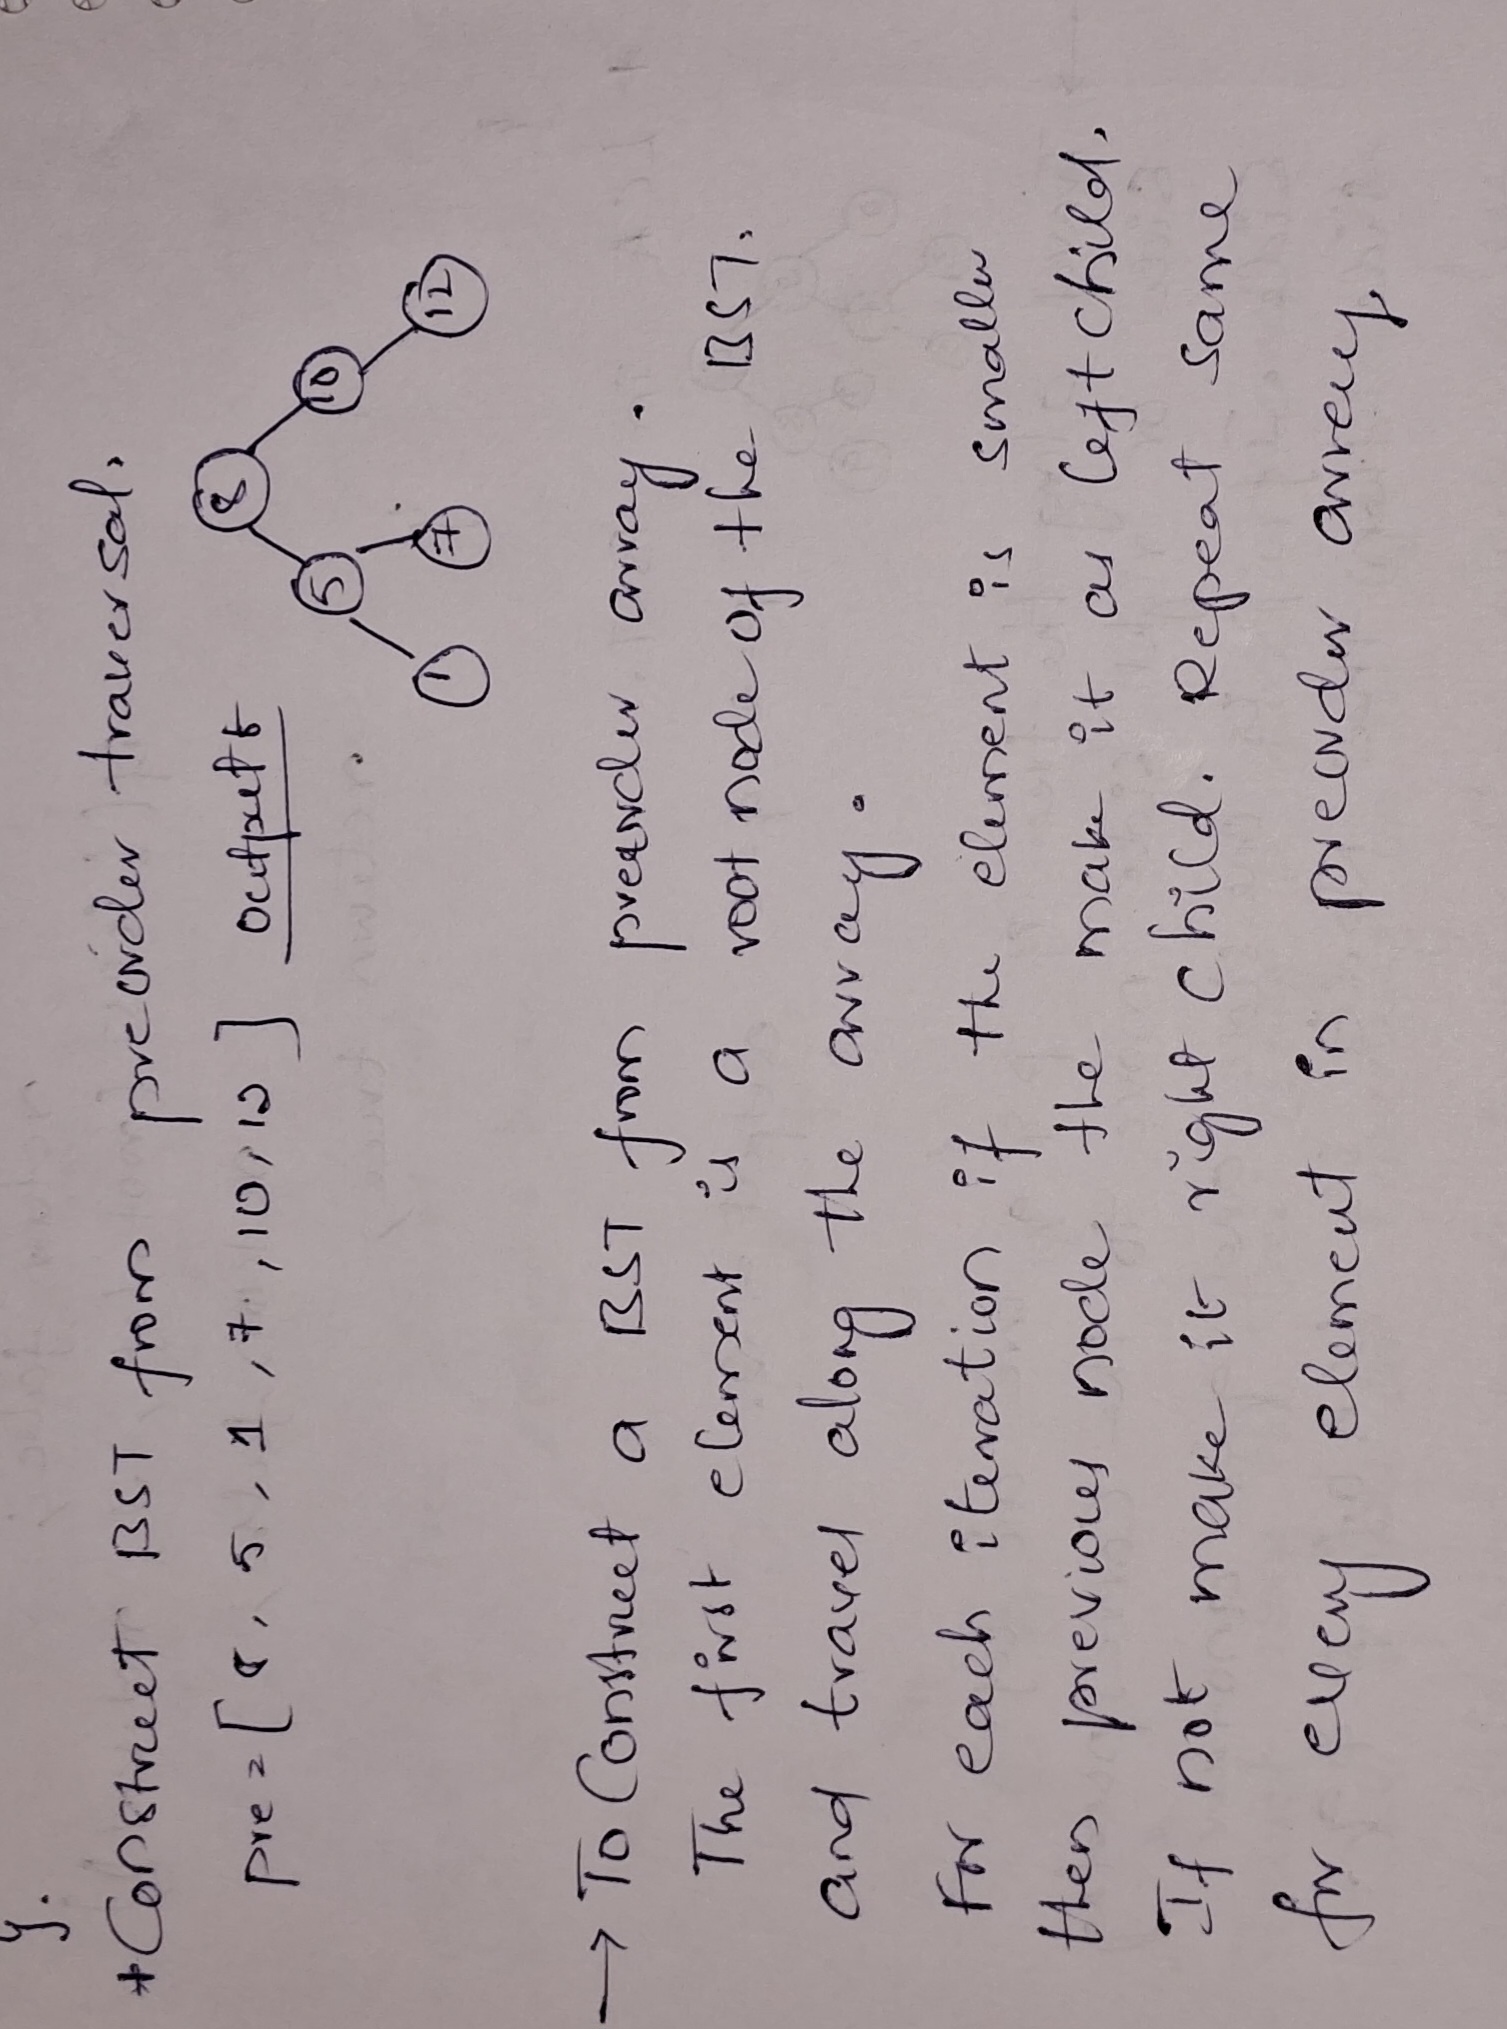 y.
* Construct BST from preorder traversal.
pre = [8, 5, 1, 7, 10, 12] Output
8
5 10
1 7 12
→ To Construct a BST from preorder array.
The first element is a root node of the BST.
and travel along the array.
for each iteration if the element is smaller
then previous node the make it as left child.
If not make it right child. Repeat same
for every element in preorder array.